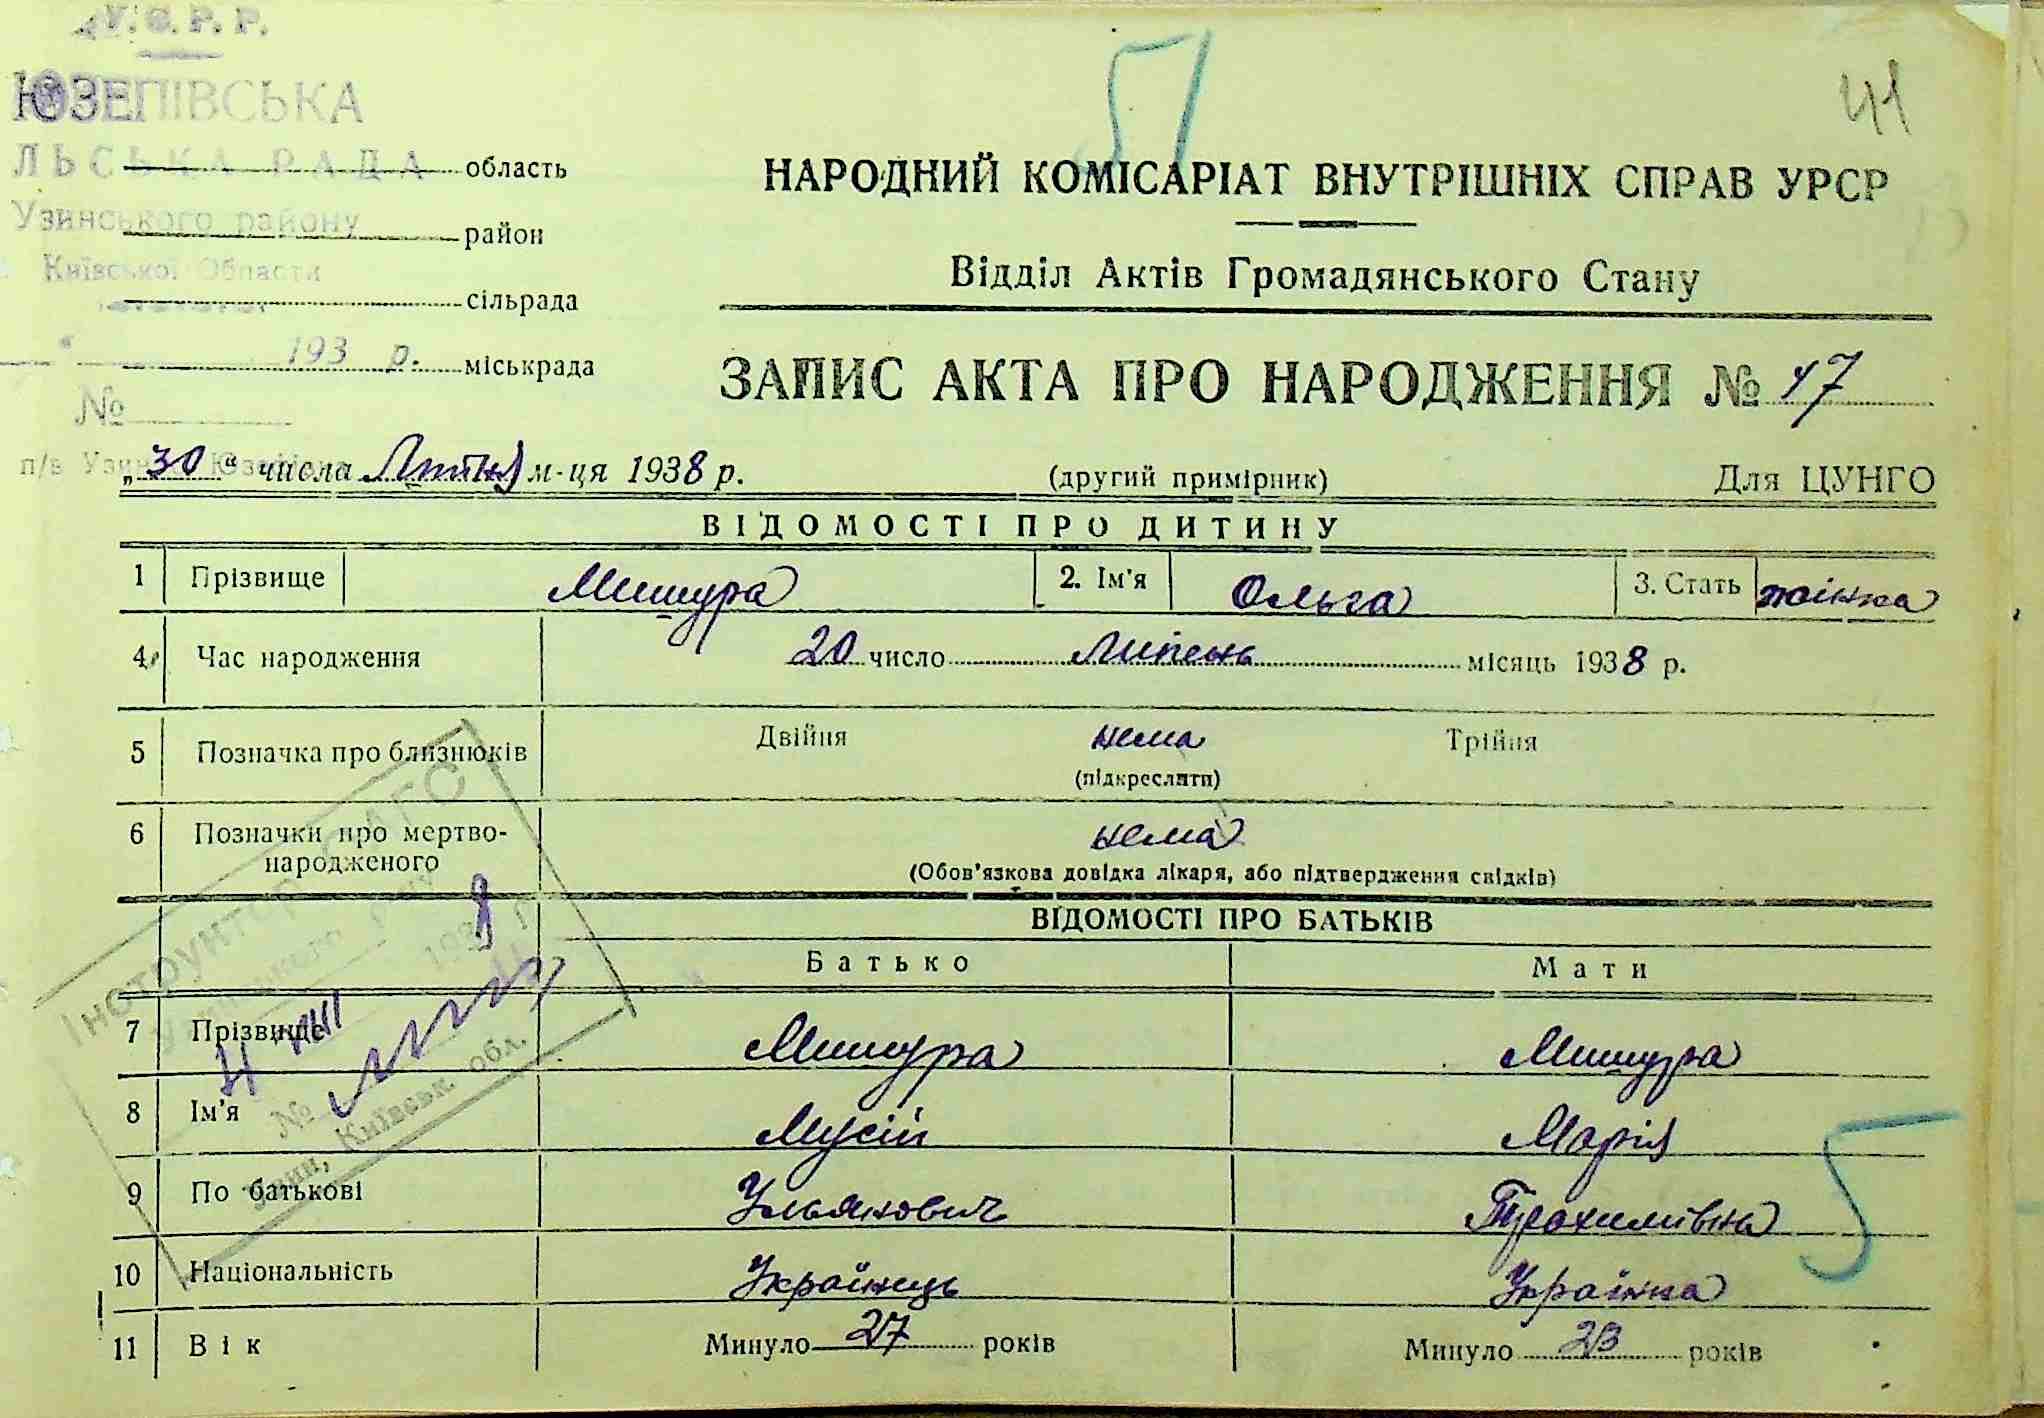 У. С. Р. Р.
51
41
ЮЗЕПІВСЬКА
ЛЬСЬКА РАДА область
Узинського району район
Київської Области
сільрада
193 р. міськрада
№
НАРОДНИЙ КОМІСАРІАТ ВНУТРІШНІХ СПРАВ УРСР
Відділ Актів Громадянського Стану
ЗАПИС АКТА ПРО НАРОДЖЕННЯ № 47
п/в Узин
„30“ числа Липня м-ця 1938 р. (другий примірник) Для ЦУНГО
ВІДОМОСТІ ПРО ДИТИНУ
1 Прізвище Мишура 2. Ім'я Ольга 3. Стать жінка
4 Час народження 20 число Липень місяць 1938 р.
5 Позначка про близнюків Двійня нема Трійня
(підкреслити)
6 Позначки про мертво-
народженого нема
(Обов'язкова довідка лікаря, або підтвердження свідків)
ВІДОМОСТІ ПРО БАТЬКІВ
Батько Мати
7 Прізвище Мишура Мишура
8 Ім'я Мусій Марія
9 По батькові Ульянович Трохимівна
10 Національність Українець Українка
11 Вік Минуло 27 років Минуло 23 років
Інструктор ЗАГС
1938 р.
4 VIII
№
Узин, Київськ. обл.
5